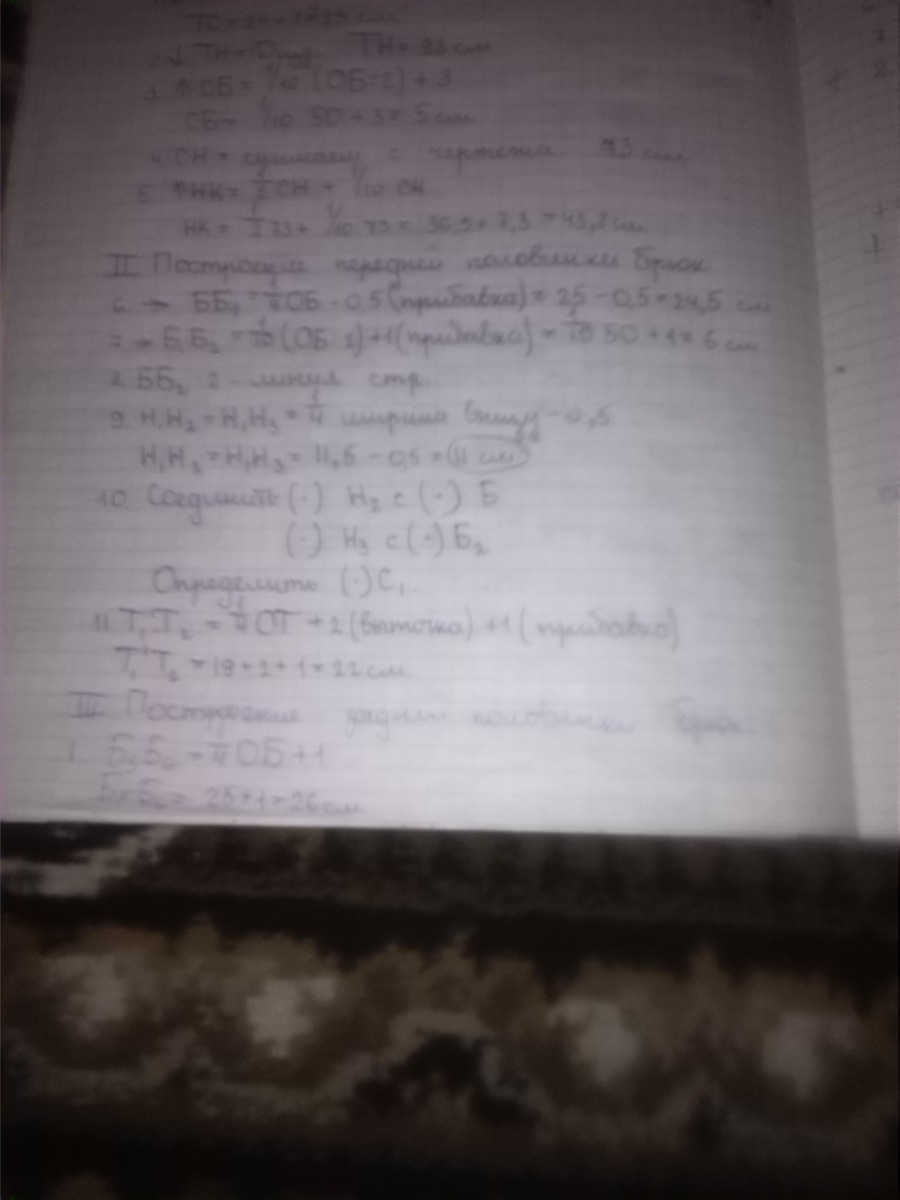 ТС = 24 + 1 = 25 см
2. ↓ ТН = Дизд. ТН = 93 см
3. ↑ СБ = 1/10 (ОБ:2) + 3
СБ = 1/10 50 + 3 = 5 см
4. СН = снимаем с чертежа 73 см
5. ↑ НК = 1/2 СН + 1/10 СН
НК = 1/2 73 + 1/10 73 = 36,5 + 7,3 = 43,8 см
II Построение передней половинки брюк
6. → ББ₁ = 1/4 ОБ - 0,5 (прибавка) = 25 - 0,5 = 24,5 см
7. → Б₁Б₂ = 1/10 (ОБ:2) + 1 (прибавка) = 1/10 50 + 1 = 6 см
8. ББ₂ : 2 - стр.
9. Н₁Н₂ = Н₁Н₃ = 1/4 ширина внизу - 0,5
Н₁Н₂ = Н₁Н₃ = 11,5 - 0,5 = 11 см
10. Соединить (·) Н₂ с (·) Б
(·) Н₃ с (·) Б₂
Определить (·) С₁
11. Т₁Т₂ = 1/4 ОТ + 2 (выточка) + 1 (прибавка)
Т₁Т₂ = 19 + 2 + 1 = 22 см.
III Построение задней половинки брюк
1. Б₅Б₆ = 1/4 ОБ + 1
Б₅Б₆ = 25 + 1 = 26 см